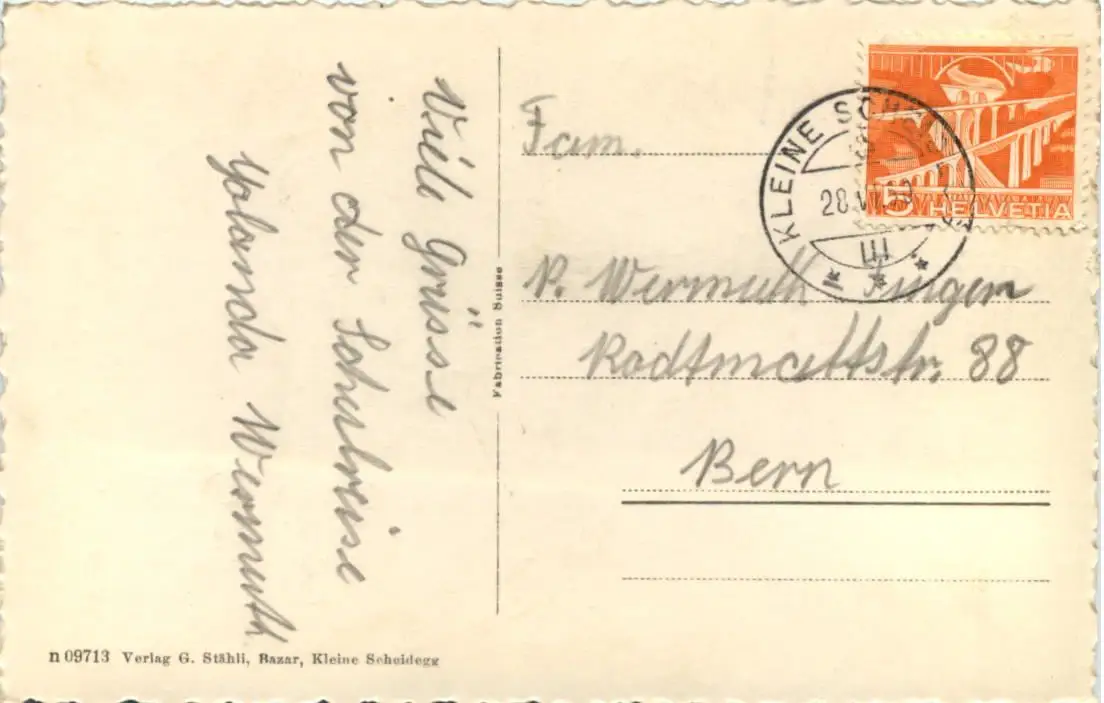 Viele Grüsse
von der Schulreise
Yolanda Wermuth
Fabrication Suisse
Fam.
R. Wermuth
Rodtmattstr. 88
Bern
KLEINE SCHEIDEGG
5 HELVETIA
n 09713 Verlag G. Stähli, Bazar, Kleine Scheidegg